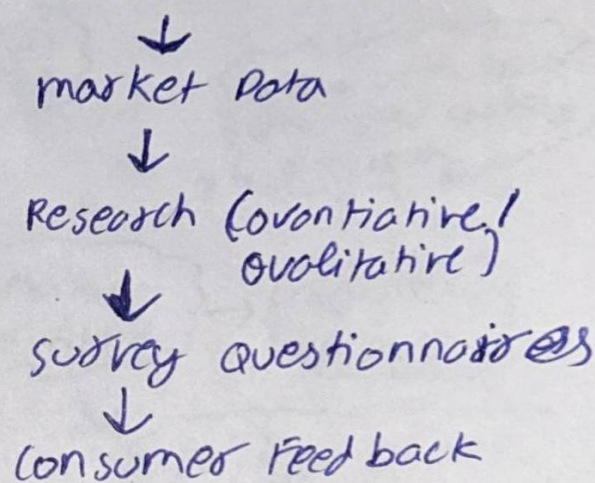 ↓
market Data
↓
Research (Quantiative/
Qualitative)
↓
survey Questionnaires
↓
Consumer Feed back